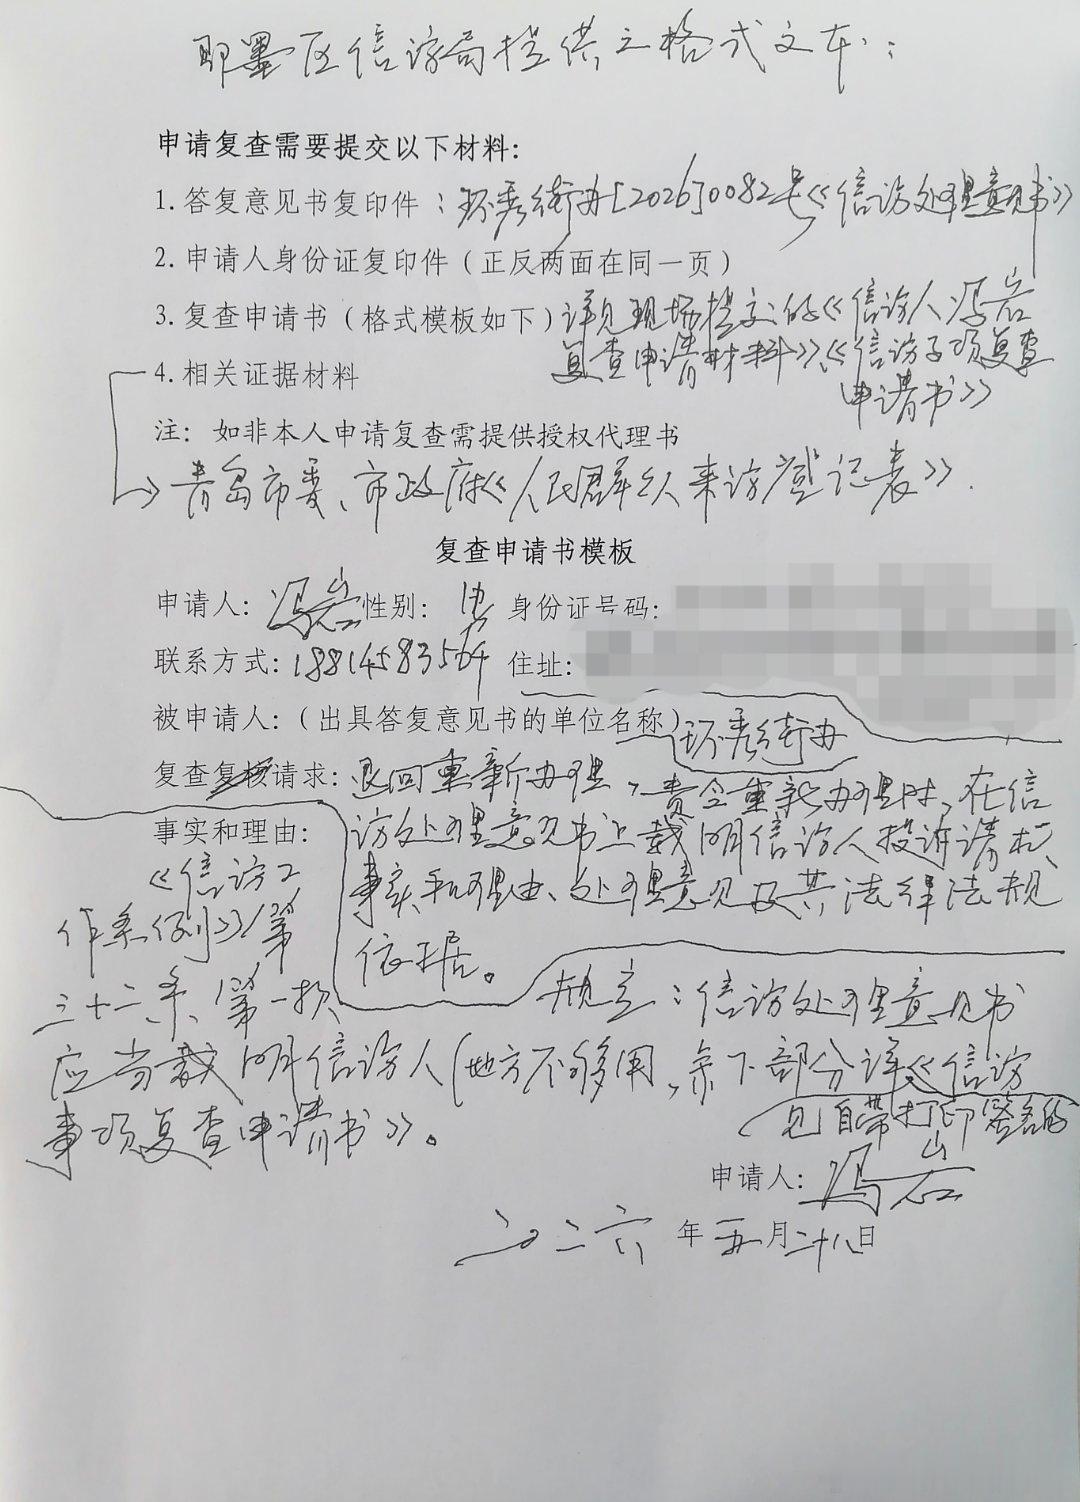 即墨区信访局提供之格式文本：
申请复查需要提交以下材料：
1.答复意见书复印件：环秀街办[2026]0082号《信访处理意见书》
2.申请人身份证复印件（正反两面在同一页）
3.复查申请书（格式模板如下）详见现场提交的《信访人冯岩
复查申请材料》《信访事项复查
申请书》
4.相关证据材料
注：如非本人申请复查需提供授权代理书
青岛市委、市政府《人民群众来访登记表》.
复查申请书模板
申请人：冯岩 性别：男 身份证号码：
联系方式：18814583564 住址：
被申请人：（出具答复意见书的单位名称）环秀街办
复查复核请求：退回重新办理，责令重新办理时，在信
访处理意见书上载明信访人投诉请求、
事实和理由、处理意见及其法律法规
依据。
事实和理由：
《信访工
作条例》第
三十二条第一款
规定：信访处理意见书
应当载明信访人（地方不够用，余下部分详《信访
见自带打印签名的
事项复查申请书》。
申请人：冯岩
二〇二六年五月二十八日